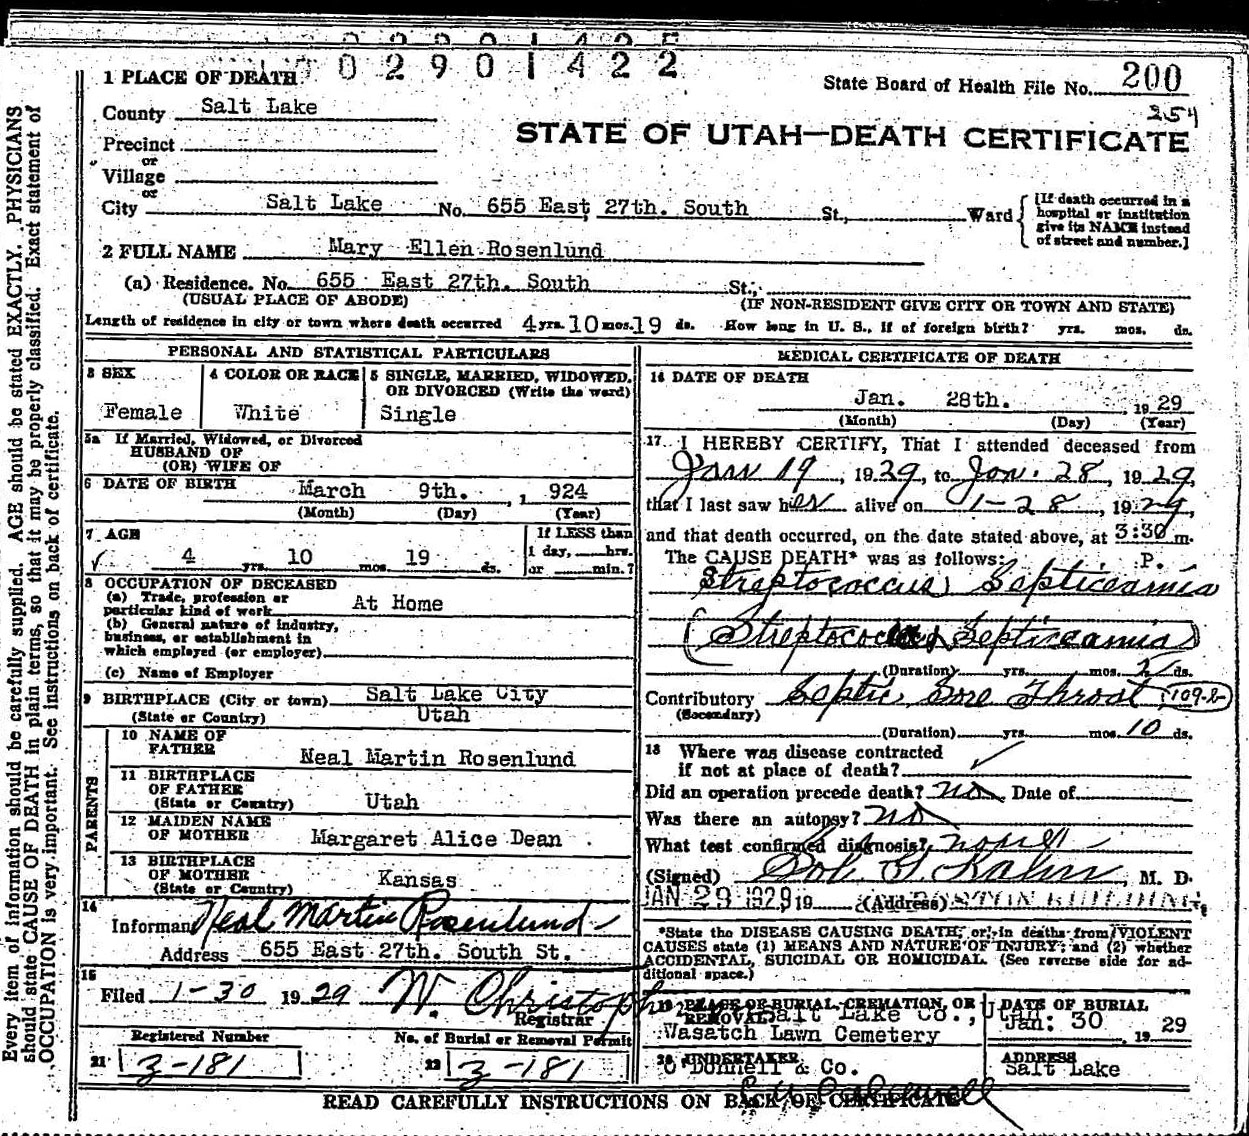 02901422
1 PLACE OF DEATH
State Board of Health File No. 200
254
County Salt Lake
STATE OF UTAH—DEATH CERTIFICATE
Precinct
or
Village
or
City Salt Lake No. 655 East 27th. South St., Ward
[If death occurred in a hospital or institution give its NAME instead of street and number.]
2 FULL NAME Mary Ellen Rosenlund
(a) Residence. No. 655 East 27th. South St.;
(USUAL PLACE OF ABODE) (IF NON-RESIDENT GIVE CITY OR TOWN AND STATE)
Length of residence in city or town where death occurred 4 yrs. 10 mos. 19 ds. How long in U. S., if of foreign birth? yrs. mos. ds.
PERSONAL AND STATISTICAL PARTICULARS
3 SEX
Female
4 COLOR OR RACE
White
5 SINGLE, MARRIED, WIDOWED,
OR DIVORCED (Write the word)
Single
5a If Married, Widowed, or Divorced
HUSBAND OF
(OR) WIFE OF
6 DATE OF BIRTH March 9th. , 1 924
(Month) (Day) (Year)
7 AGE
4 yrs. 10 mos. 19 ds.
If LESS than
1 day, hrs.
or min.?
8 OCCUPATION OF DECEASED
(a) Trade, profession or
particular kind of work At Home
(b) General nature of industry,
business, or establishment in
which employed (or employer)
(c) Name of Employer
9 BIRTHPLACE (City or town) Salt Lake City
(State or Country) Utah
PARENTS
10 NAME OF
FATHER Neal Martin Rosenlund
11 BIRTHPLACE
OF FATHER
(State or Country) Utah
12 MAIDEN NAME
OF MOTHER Margaret Alice Dean
13 BIRTHPLACE
OF MOTHER
(State or Country) Kansas
14
Informant Neal Martin Rosenlund
Address 655 East 27th. South St.
15
Filed 1-30 1929 W. Christoph
Registrar
Registered Number No. of Burial or Removal Permit
21 3-181 22 3-181
MEDICAL CERTIFICATE OF DEATH
16 DATE OF DEATH
Jan. 28th. 1929
(Month) (Day) (Year)
17 I HEREBY CERTIFY, That I attended deceased from
Jan 19, 1929, to Jan. 28, 1929,
that I last saw her alive on 1-28, 1929,
and that death occurred, on the date stated above, at 3:30 m.
The CAUSE DEATH* was as follows: P.
Streptococcus Septiceamia
(Streptococcus Septiceamia)
(Duration) yrs. mos. 2 ds.
Contributory Septic Sore Throat 109-2
(Secondary)
(Duration) yrs. mos. 10 ds.
18 Where was disease contracted
if not at place of death?
Did an operation precede death? no Date of
Was there an autopsy? no
What test confirmed diagnosis?
(Signed) Sol G Kahn, M. D.
JAN 29 1929 19 (Address) BOSTON BUILDING
*State the DISEASE CAUSING DEATH, or, in deaths from VIOLENT
CAUSES state (1) MEANS AND NATURE OF INJURY; and (2) whether
ACCIDENTAL, SUICIDAL OR HOMICIDAL. (See reverse side for ad-
ditional space.)
19 PLACE OF BURIAL, CREMATION, OR
REMOVAL Salt Lake Co., Utah.
Wasatch Lawn Cemetery
DATE OF BURIAL
Jan. 30 , 19 29
20 UNDERTAKER
O'Donnell & Co.
ADDRESS
Salt Lake
READ CAREFULLY INSTRUCTIONS ON BACK OF CERTIFICATE
Every item of information should be carefully supplied. AGE should be stated EXACTLY. PHYSICIANS
should state CAUSE OF DEATH in plain terms, so that it may be properly classified. Exact statement of
OCCUPATION is very important. See instructions on back of certificate.